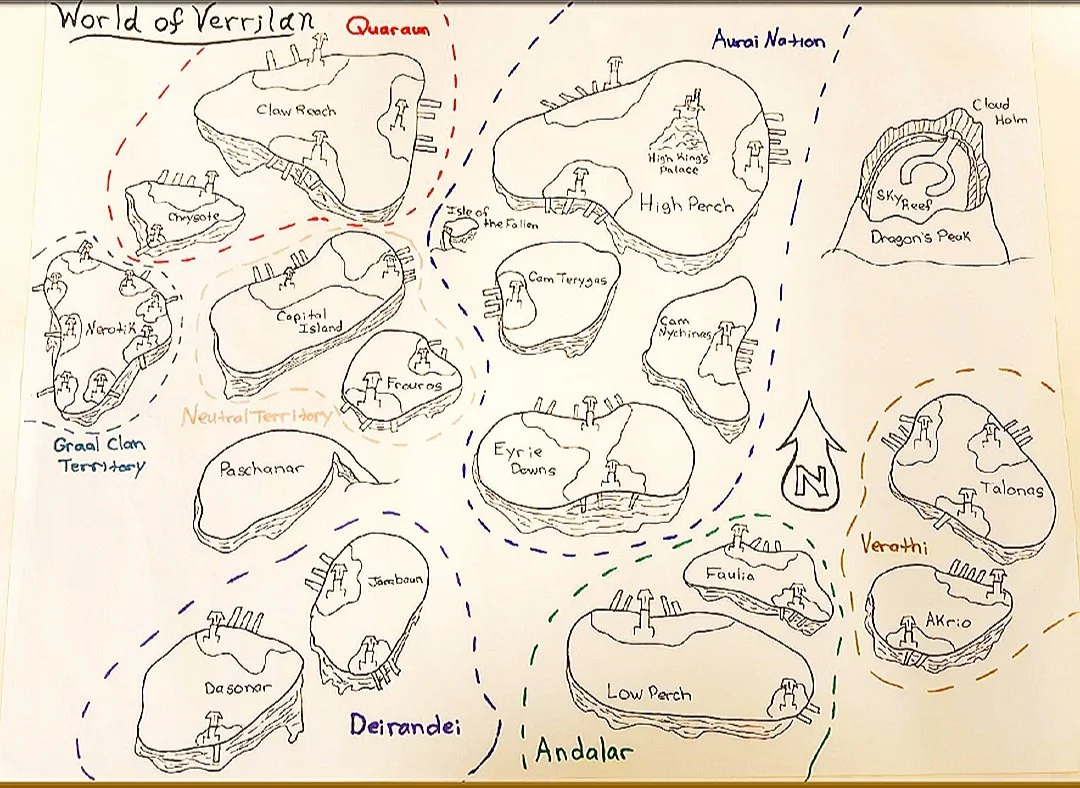 World of Verrilan
Quaraun
Aurai Nation
Claw Reach
Cloud
Holm
High King's
Palace
High Perch
Sky
Reef
Dragon's Peak
Chrysote
Isle of
the Fallen
Cam Terygas
Capital
Island
Nerotik
Cam
Nychinas
Frouros
Neutral Territory
Graal Clan
Territory
Paschanar
Eyrie
Downs
N
Talonas
Verathi
Faulia
Jarabaun
Akrio
Dasonar
Low Perch
Deirandei
Andalar